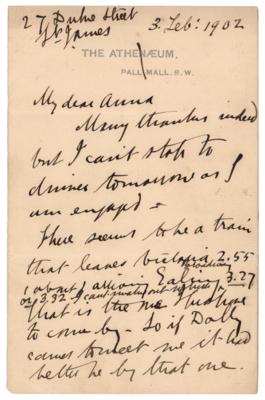 27 Duke Street
St James
3 Feb: 1902
THE ATHENÆUM,
PALL MALL. S.W.
My dear Anna
Many thanks indeed
but I can't stop to
dinner tomorrow as I
am engaged.
There seems to be a train
that leaves Victoria 2.55
(about) arriving Ealing 3.27
or 3.32 I can't make out which
That is the one I propose
to come by - So if Dolly
comes to meet me it had
better be by that one.